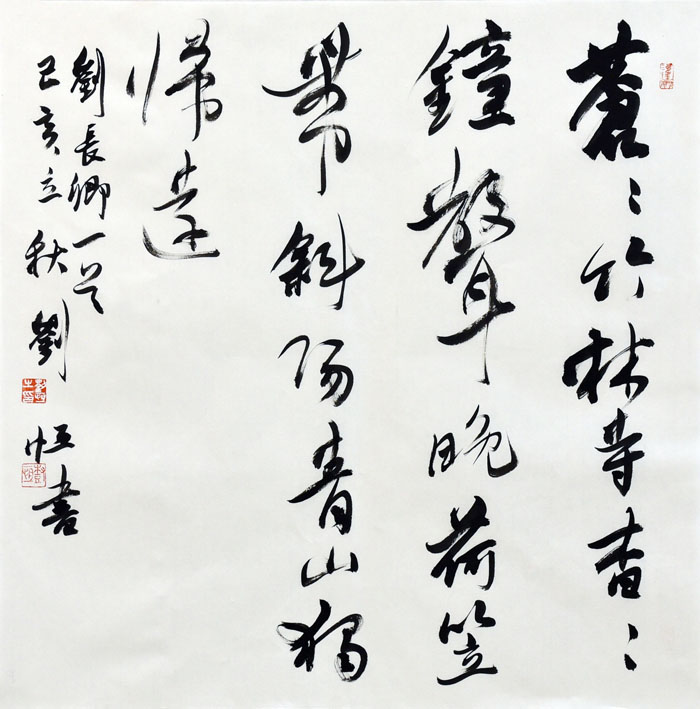 蒼〻竹林寺杳〻
鐘聲晚荷笠
帶斜陽青山獨
歸遠
劉長卿一首
己亥立秋劉恒書